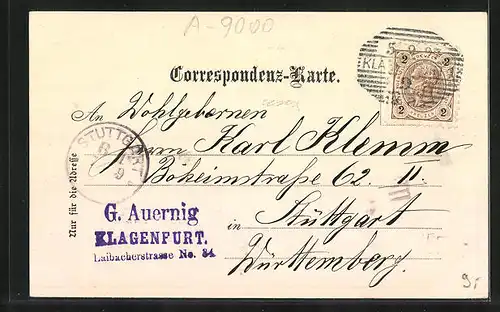 A-9000
Correspondenz-Karte.
2 2
2 2
KLA
An Wohlgebornen
Herrn Karl Klemm
Böheimstraße 62. II.
in Stuttgart
Württemberg.
Nur für die Adresse
STUTTGART
G. Auernig
KLAGENFURT.
Laibacherstrasse No. 34.